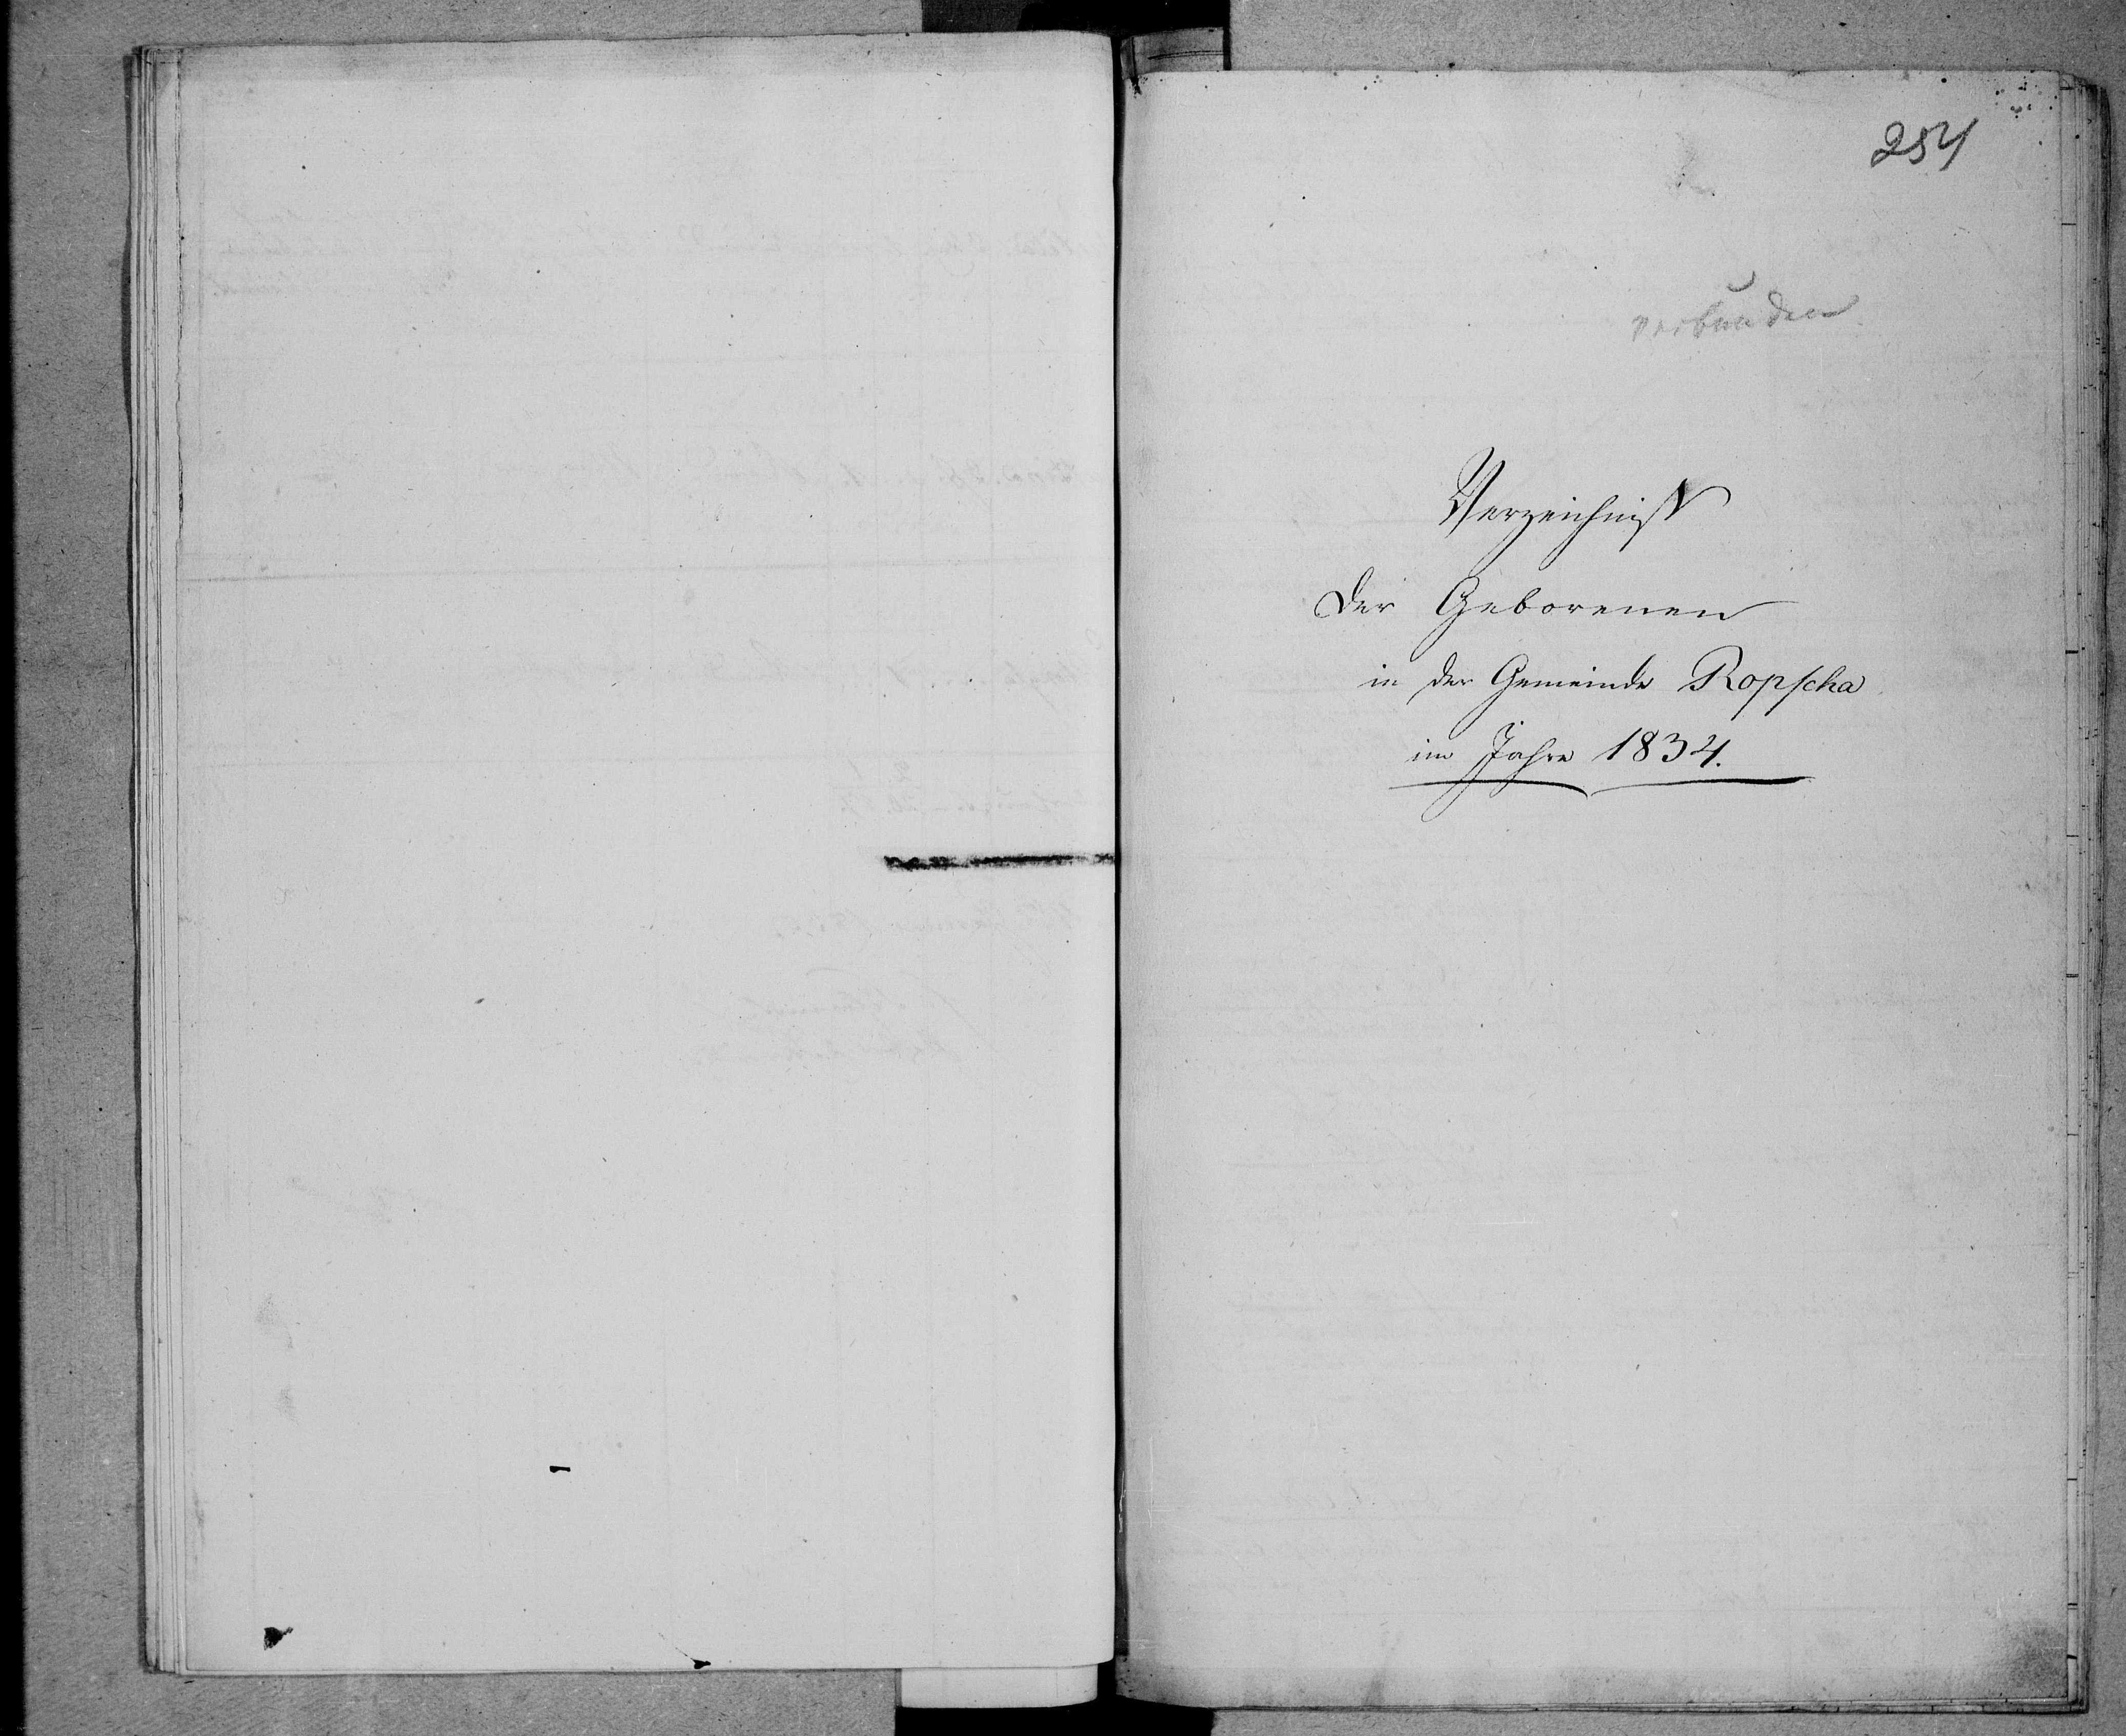 254
verbunden
Verzeichniß
der Geborenen
in der Gemeinde Ropscha
im Jahre 1834.